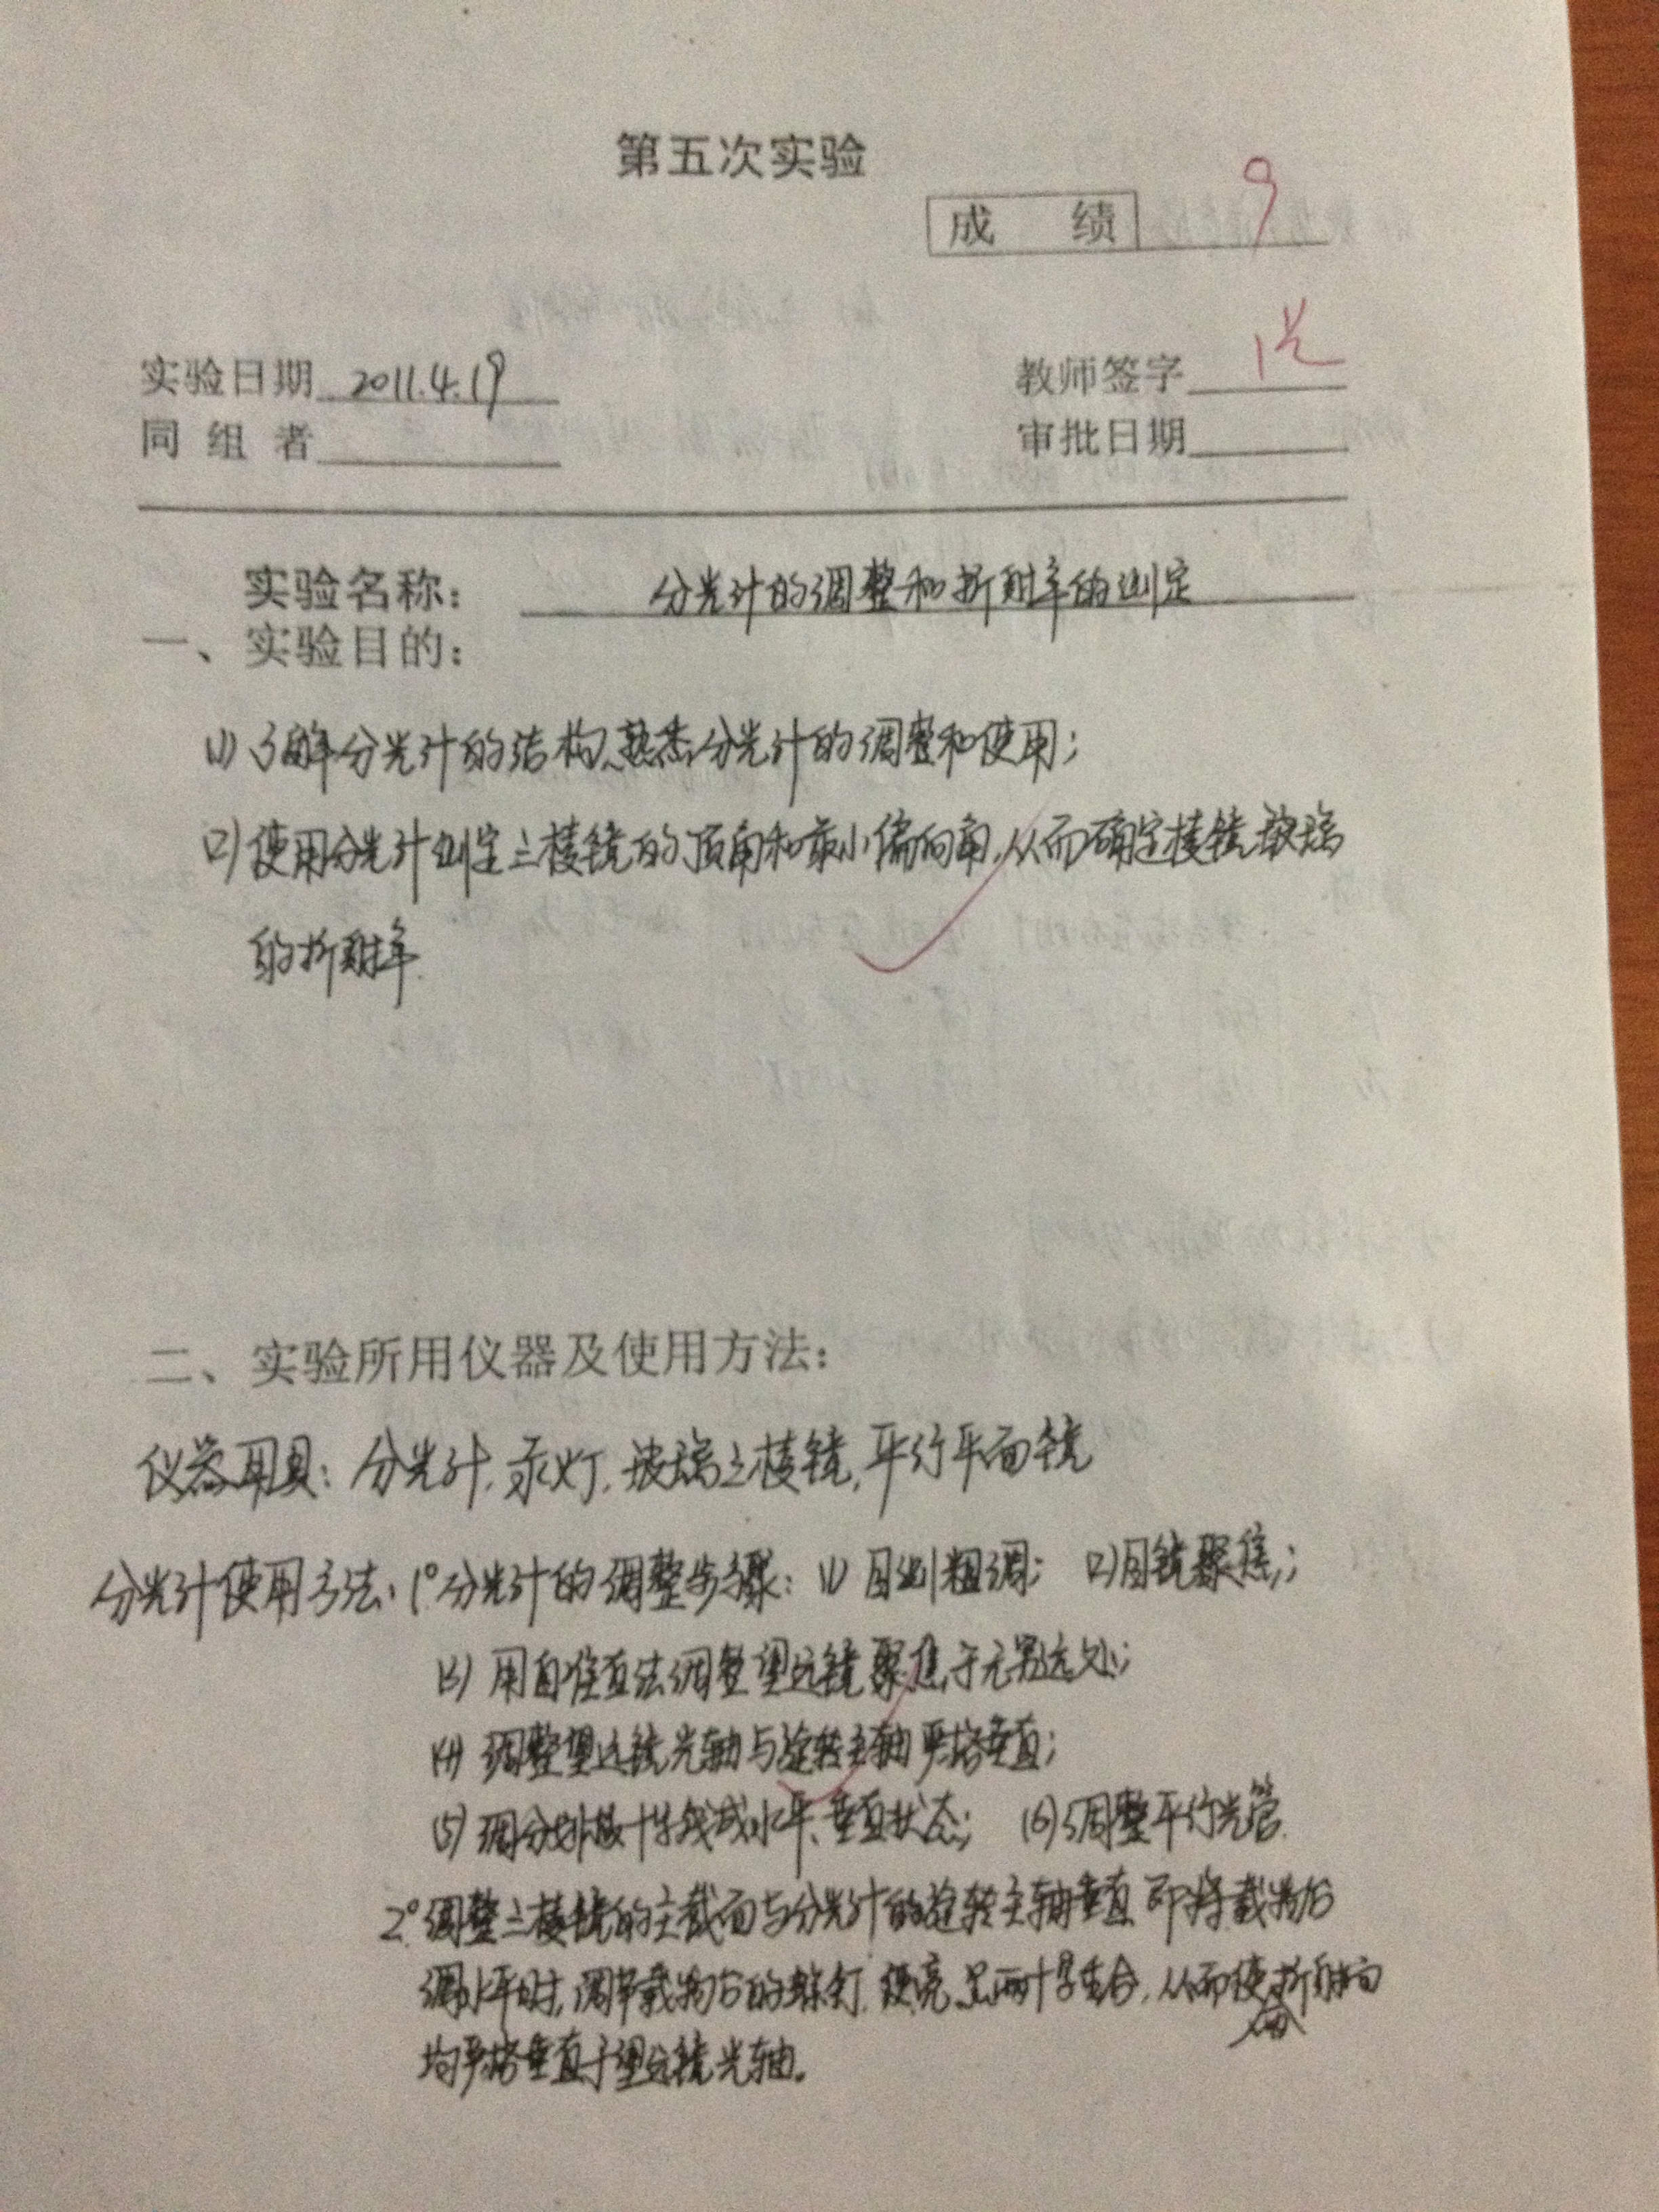 第五次实验
成 绩 9
实验日期 2011.4.19 教师签字
同 组 者 审批日期
实验名称： 分光计的调整和折射率的测定
一、实验目的：
(1) 了解分光计的结构、熟悉分光计的调整和使用；
(2) 使用分光计测定三棱镜的顶角和最小偏向角，从而确定棱镜玻璃
的折射率.
二、实验所用仪器及使用方法：
仪器用具：分光计，汞灯，玻璃三棱镜，平行平面镜
分光计使用方法：1°分光计的调整步骤：(1) 目测粗调； (2)目镜聚焦；
(3) 用自准直法调整望远镜聚焦于无穷远处；
(4) 调整望远镜光轴与旋转主轴严格垂直；
(5) 调分划板十字线成水平、垂直状态； (6)调整平行光管.
2°.调整三棱镜的主截面与分光计的旋转主轴垂直.即将载物台
调水平时，调节载物台的螺钉，使亮 两十字重合，从而使折射面
均严格垂直于望远镜光轴.